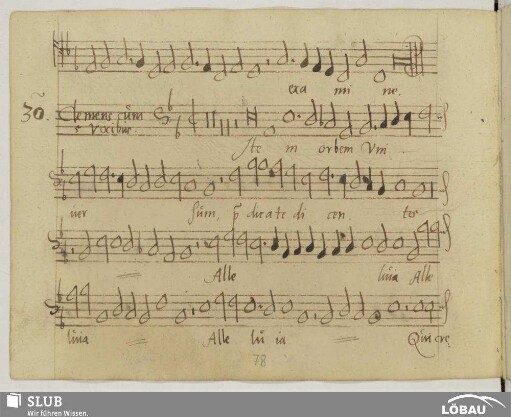 exa mi ne.
30. Clemens cum
5 vocibus
Ite in orbem Vni
uer sum, p̄ dicate di cen tes
Alle luia Alle
luia Alle lu ia Qui cre
78
SLUB
Wir führen Wissen.
LÖBAU